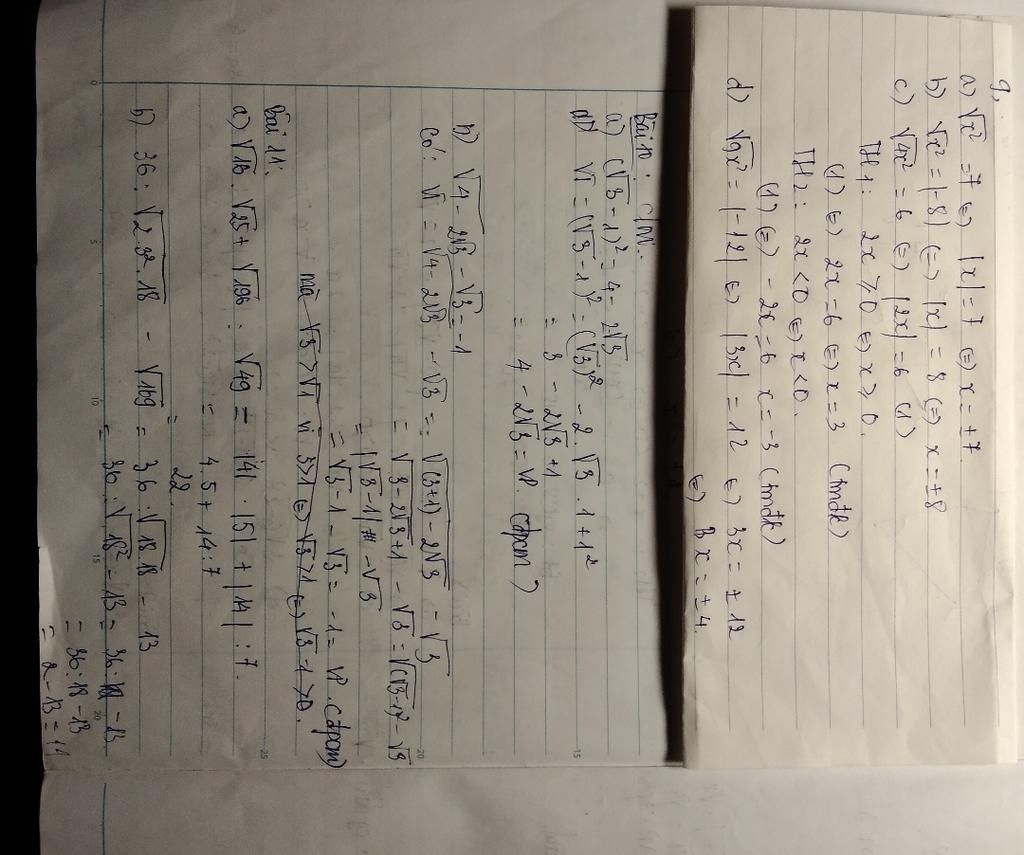 9,
a) √x² = 7 ⇔ |x| = 7 ⇔ x = ±7.
b) √x² = |-8| ⇔ |x| = 8 ⇔ x = ±8
c) √4x² = 6 ⇔ |2x| = 6 (1)
TH1: 2x ≥ 0 ⇔ x ≥ 0.
(1) ⇔ 2x = 6 ⇔ x = 3 (tmđk)
TH2: 2x < 0 ⇔ x < 0.
(1) ⇔ -2x = 6 x = -3 (tmđk)
d) √9x² = |-12| ⇔ |3x| = 12 ⇔ 3x = ±12
⇔ x = ±4.
Bài 10: c/m:
a) (√3 - 1)² = 4 - 2√3
VT = (√3 - 1)² = (√3)² - 2.√3.1 + 1²
= 3 - 2√3 + 1
= 4 - 2√3 = VP. (đpcm)
b) √4 - 2√3 - √3 = -1
Có: VT = √4 - 2√3 - √3 = √(3+1) - 2√3 - √3
= √3 - 2√3 + 1 - √3 = √(√3 - 1)² - √3
= |√3 - 1| - √3
= √3 - 1 - √3 = -1 = VP. (đpcm)
mà √3 > √1 vì 3 > 1 ⇔ √3 > 1 ⇔ √3 - 1 > 0.
Bài 11:
a) √16 . √25 + √196 : √49 = |4| . |5| + |14| : 7.
= 4.5 + 14:7
= 22.
b) 36 : √2.3².18 - √169 = 36 : √18.18 - 13
= 36 : √18² - 13 = 36 : 18 - 13
= 36:18 - 13
= 2 - 13 = 11